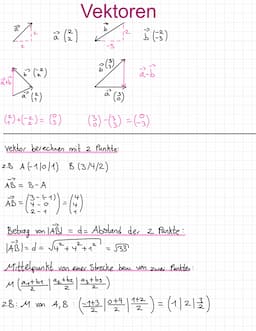 Vektoren
a⃗ 2 2 a⃗ (2 2)
b⃗ -3 b⃗ (-2 -3)
a⃗+b⃗ b⃗ (-2 2) a⃗ (2 1)
b⃗ (3 3) a⃗ (3 0) a⃗-b⃗
(2 1)+(-2 2)=(0 3) (3 0)-(3 3)=(0 -3)
Vektor berechnen mit 2 Punkte:
z.B A(-1|0|1) B(3|4|2)
AB⃗ = B-A
AB⃗ = (3-(-1) 4-0 2-1) = (4 4 1)
Betrag von |AB⃗| = d = Abstand der 2 Punkte:
|AB⃗| = d = √4²+4²+1² = √33
Mittelpunkt von einer Strecke bzw von zwei Punkte:
M (a₁+b₁/2 | a₂+b₂/2 | a₃+b₃/2)
z.B: M von A,B: (-1+3/2 | 0+4/2 | 1+2/2) = (1|2|1/2)